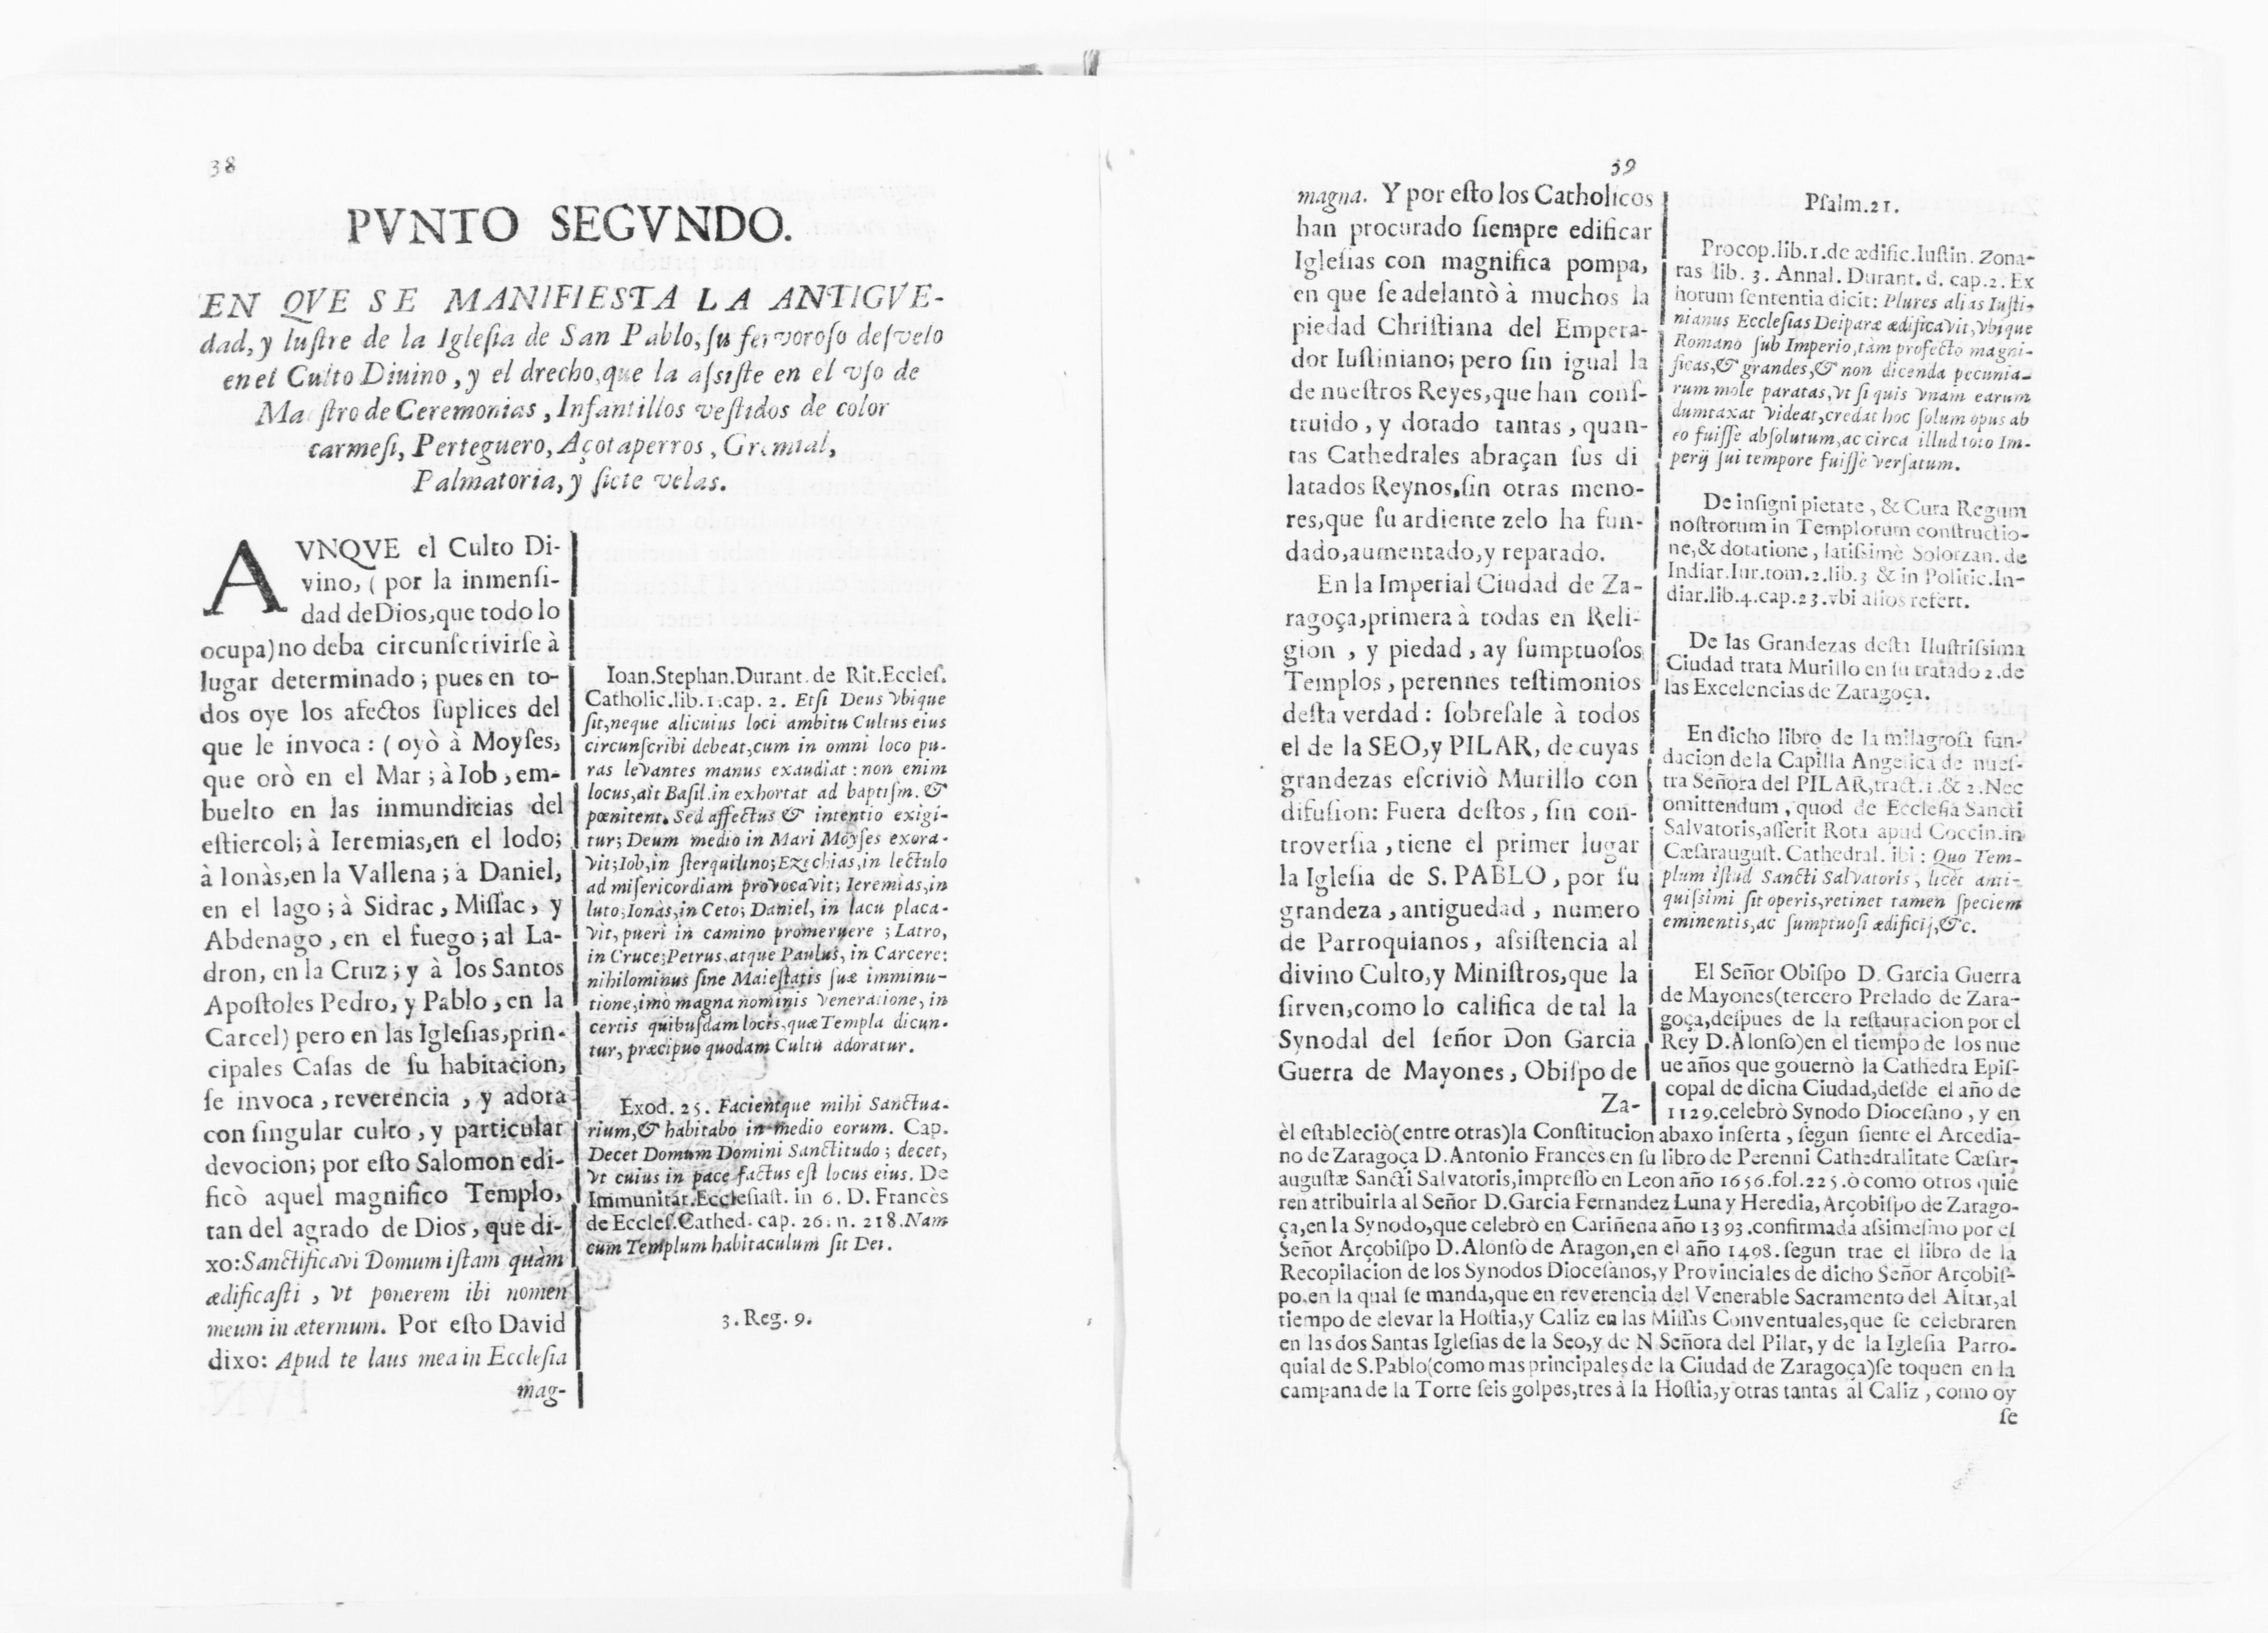 38
PVNTO SEGVNDO.
EN QVE SE MANIFIESTA LA ANTIGVE-
dad, y luſtre de la Igleſia de San Pablo, ſu fervoroſo deſvelo
en el Culto Diuino, y el drecho, que la aſsiſte en el vſo de
Maeſtro de Ceremonias, Infantillos veſtidos de color
carmeſi, Perteguero, Açotaperros, Gremial,
Palmatoria, y ſiete velas.
AVNQVE el Culto Di-
vino, (por la inmenſi-
dad de Dios, que todo lo
ocupa) no deba circunſcrivirſe à
lugar determinado; pues en to-
dos oye los afectos ſuplices del
que le invoca: (oyò à Moyſes,
que orò en el Mar; à Iob, em-
buelto en las inmundicias del
eſtiercol; à Ieremias, en el lodo;
à Ionàs, en la Vallena; à Daniel,
en el lago; à Sidrac, Miſſac, y
Abdenago, en el fuego; al La-
dron, en la Cruz; y à los Santos
Apoſtoles Pedro, y Pablo, en la
Carcel) pero en las Igleſias, prin-
cipales Caſas de ſu habitacion,
ſe invoca, reverencia, y adora
con ſingular culto, y particular
devocion; por eſto Salomon edi-
ficò aquel magnifico Templo,
tan del agrado de Dios, que di-
xo: Sanctificavi Domum iſtam quàm
ædificaſti, vt ponerem ibi nomen
meum in æternum. Por eſto David
dixo: Apud te laus mea in Eccleſia
mag-
Ioan. Stephan. Durant. de Rit. Eccleſ.
Catholic. lib. 1. cap. 2. Etſi Deus vbique
ſit, neque alicuius loci ambitu Cultus eius
circunſcribi debeat, cum in omni loco pu-
ras levantes manus exaudiat: non enim
locus, ait Baſil. in exhortat ad baptiſm. &
pœnitent. Sed affectus & intentio exigi-
tur; Deum medio in Mari Moyſes exora-
vit; Iob, in ſterquilino; Ezechias, in lectulo
ad miſericordiam provocavit; Ieremias, in
luto; Ionàs, in Ceto; Daniel, in lacu placa-
vit, pueri in camino promeruere; Latro,
in Cruce; Petrus, atque Paulus, in Carcere:
nihilominus ſine Maieſtatis ſuæ imminu-
tione, imò magna nominis veneratione, in
certis quibuſdam locis, quæ Templa dicun-
tur, præcipuo quodam Cultu adoratur.
Exod. 25. Facientque mihi Sanctua-
rium, & habitabo in medio eorum. Cap.
Decet Domum Domini Sanctitudo; decet,
vt cuius in pace factus eſt locus eius. De
Immunitat. Eccleſiaſt. in 6. D. Francès
de Eccleſ. Cathed. cap. 26. n. 218. Nam
cum Templum habitaculum ſit Dei.
3. Reg. 9.
39
magna. Y por eſto los Catholicos
han procurado ſiempre edificar
Igleſias con magnifica pompa,
en que ſe adelantò à muchos la
piedad Chriſtiana del Empera-
dor Iuſtiniano; pero ſin igual la
de nueſtros Reyes, que han conſ-
truido, y dotado tantas, quan-
tas Cathedrales abraçan ſus di
latados Reynos, ſin otras meno-
res, que ſu ardiente zelo ha fun-
dado, aumentado, y reparado.
En la Imperial Ciudad de Za-
ragoça, primera à todas en Reli-
gion, y piedad, ay ſumptuoſos
Templos, perennes teſtimonios
deſta verdad: ſobreſale à todos
el de la SEO, y PILAR, de cuyas
grandezas eſcriviò Murillo con
difuſion: Fuera deſtos, ſin con-
troverſia, tiene el primer lugar
la Igleſia de S. PABLO, por ſu
grandeza, antiguedad, numero
de Parroquianos, aſsiſtencia al
divino Culto, y Miniſtros, que la
ſirven, como lo califica de tal la
Synodal del ſeñor Don Garcia
Guerra de Mayones, Obiſpo de
Za-
Pſalm. 21.
Procop. lib. 1. de ædific. Iuſtin. Zona-
ras lib. 3. Annal. Durant. d. cap. 2. Ex
horum ſententia dicit: Plures alias Iuſti-
nianus Eccleſias Deiparæ ædificavit, vbique
Romano ſub Imperio, tàm profecto magni-
ficas, & grandes, & non dicenda pecunia-
rum mole paratas, vt ſi quis vnam earum
dumtaxat videat, credat hoc ſolum opus ab
eo fuiſſe abſolutum, ac circa illud toto Im-
perij ſui tempore fuiſſe verſatum.
De inſigni pietate, & Cura Regum
noſtrorum in Templorum conſtructio-
ne, & dotatione, latiſsimè Solorzan. de
Indiar. Iur. tom. 2. lib. 3 & in Politic. In-
diar. lib. 4. cap. 23. vbi alios refert.
De las Grandezas deſta Iluſtriſsima
Ciudad trata Murillo en ſu tratado 2. de
las Excelencias de Zaragoça.
En dicho libro de la milagroſa fun-
dacion de la Capilla Angelica de nueſ-
tra Señora del PILAR, tract. 1. & 2. Nec
omittendum, quod de Eccleſia Sancti
Salvatoris, aſſerit Rota apud Coccin. in
Cæſarauguſt. Cathedral. ibi: Quo Tem-
plum iſtud Sancti Salvatoris, licèt anti-
quiſsimi ſit operis, retinet tamen ſpeciem
eminentis, ac ſumptuoſi ædificij, &c.
El Señor Obiſpo D. Garcia Guerra
de Mayones (tercero Prelado de Zara-
goça, deſpues de la reſtauracion por el
Rey D. Alonſo) en el tiempo de los nue
ue años que gouernò la Cathedra Epiſ-
copal de dicha Ciudad, deſde el año de
1129. celebrò Synodo Dioceſano, y en
èl eſtableciò (entre otras) la Conſtitucion abaxo inſerta, ſegun ſiente el Arcedia-
no de Zaragoça D. Antonio Francès en ſu libro de Perenni Cathedralitate Cæſar-
auguſtæ Sancti Salvatoris, impreſſo en Leon año 1656. fol. 225. ò como otros quie
ren atribuirla al Señor D. Garcia Fernandez Luna y Heredia, Arçobiſpo de Zarago-
ça, en la Synodo, que celebrò en Cariñena año 1393. confirmada aſsimeſmo por el
Señor Arçobiſpo D. Alonſo de Aragon, en el año 1498. ſegun trae el libro de la
Recopilacion de los Synodos Dioceſanos, y Provinciales de dicho Señor Arçobiſ-
po, en la qual ſe manda, que en reverencia del Venerable Sacramento del Altar, al
tiempo de elevar la Hoſtia, y Caliz en las Miſſas Conventuales, que ſe celebraren
en las dos Santas Igleſias de la Seo, y de N Señora del Pilar, y de la Igleſia Parro-
quial de S. Pablo (como mas principales de la Ciudad de Zaragoça) ſe toquen en la
campana de la Torre ſeis golpes, tres à la Hoſtia, y otras tantas al Caliz, como oy
ſe